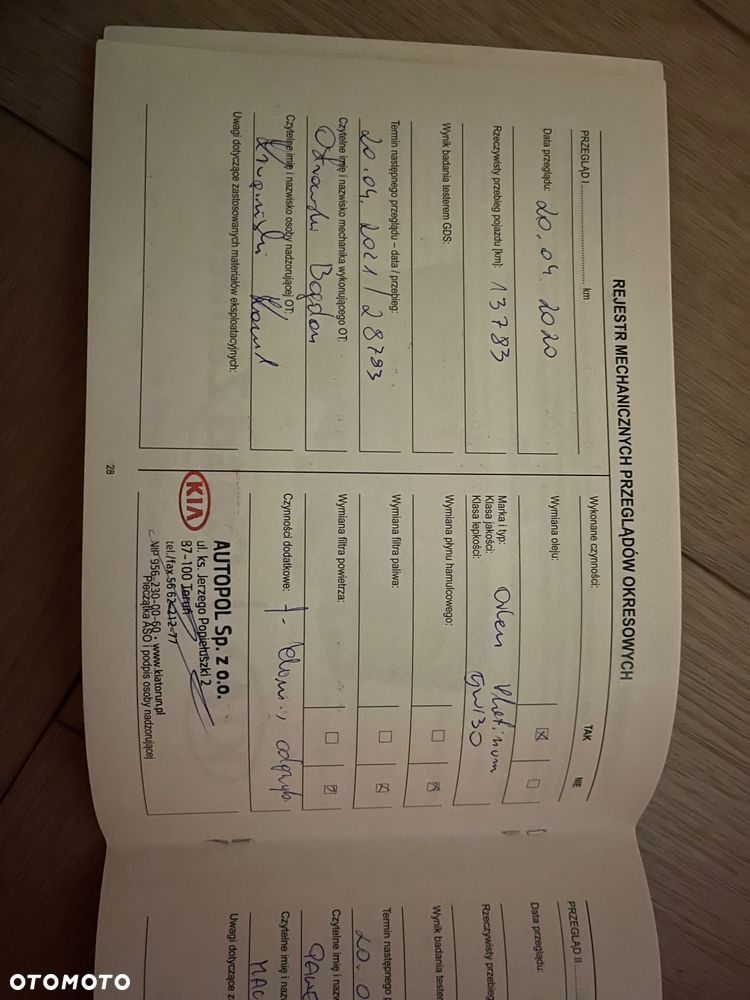 REJESTR MECHANICZNYCH PRZEGLĄDÓW OKRESOWYCH
PRZEGLĄD I .................................. km
Data przeglądu: 20.04.2020
Rzeczywisty przebieg pojazdu [km]: 13783
Wynik badania testerem GDS:
Termin następnego przeglądu – data / przebieg:
20.04.2021 / 28783
Czytelne imię i nazwisko mechanika wykonującego OT:
Bogdan
Czytelne imię i nazwisko osoby nadzorującej OT:
Uwagi dotyczące zastosowanych materiałów eksploatacyjnych:
Wykonane czynności: TAK NIE
Wymiana oleju: ☒ ☐
Marka i typ: Orlen Platinum
Klasa jakości:
Klasa lepkości: 5W30
Wymiana płynu hamulcowego: ☐ ☒
Wymiana filtra paliwa: ☐ ☒
Wymiana filtra powietrza: ☐ ☒
Czynności dodatkowe:
KIA
AUTOPOL Sp. z o.o.
ul. ks. Jerzego Popiełuszki 2
87-100 Toruń
tel./fax 56 62-212-77
NIP 956-230-00-60 • www.kiatorun.pl
Pieczątka ASO i podpis osoby nadzorującej
28
PRZEGLĄD II ....
Data przeglądu:
Rzeczywisty przebieg
Wynik badania testerem
Termin następnego p
20.0
Czytelne imię i na
Czytelne imię i na
MAC
Uwagi dotyczące z
OTOMOTO